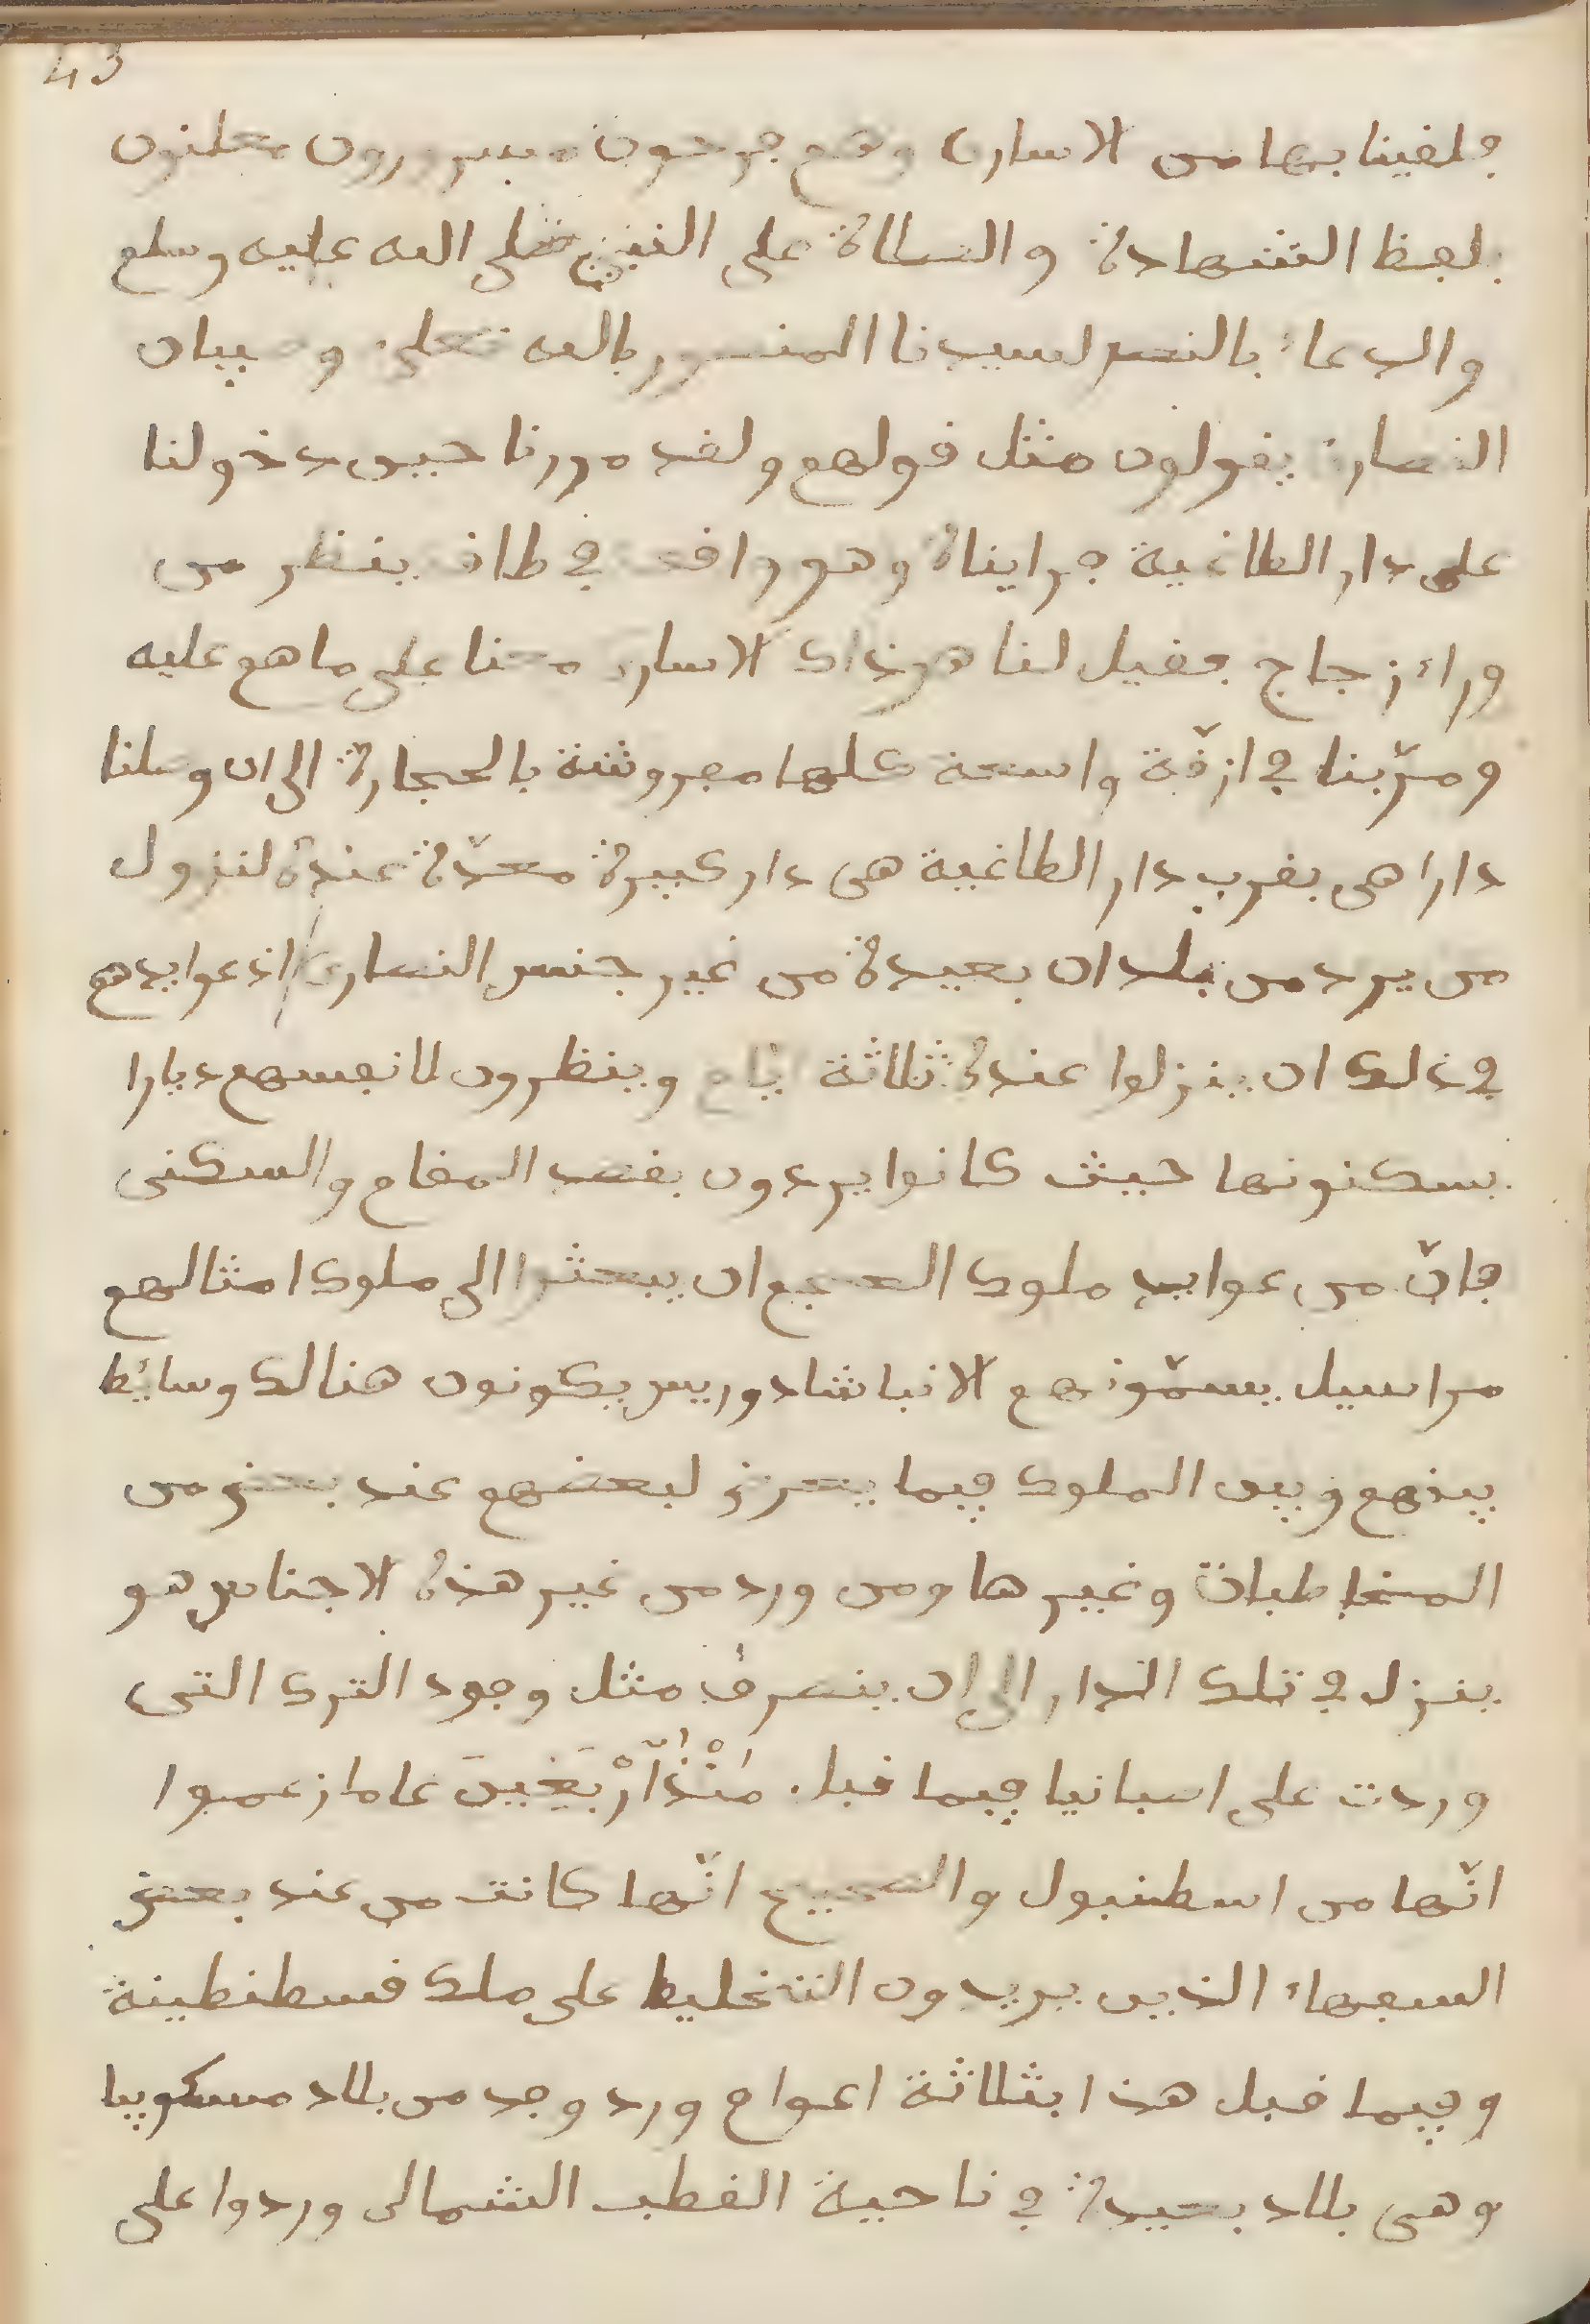 43
فلقينا بها من الاسارى وهم فرحون مسرورون معلنون
بلفظ الشهادة والصلاة على النبي صلى الله عليه وسلم
والدعاء بالنصر لسيدنا المنصور بالله تعلى وصبيان
النصارى يقولون مثل قولهم ولقد مررنا حين دخولنا
على دار الطاغية فرايناه وهو واقف في طاق ينظر من
وراء زجاج فقيل لنا الاسارى معنا على ما هم عليه
ومرّ بنا في ازقّة واسعة كلها مفروشة بالحجارة الى ان وصلنا
دارا هي بقرب دار الطاغية هي دار كبيرة معدّة عنده لنزول
من يرد من بلدان بعيدة من غير جنس النصارى اذ عوايدهم
في ذلك ان ينزلوا عنده ثلاثة ايام وينظرون لانفسهم ديارا
يسكنونها حيث كانوا يردون بقصد المقام والسكنى
فانّ من عوايد ملوك العجم ان يبعثوا الى ملوك امثالهم
مراسيل يسمّونهم الانباشادوريس يكونون هنالك وسائط
بينهم وبين الملوك فيما يعرض لبعضهم عند بعض من
المخاطبات وغيرها ومن ورد من غير هذه الاجناس هو
ينزل في تلك الدار الى ان ينصرف مثل وجود الترك التي
وردت على اسبانيا فيما قبل مُنْذُ أَرْبَعِينَ عاما زعموا
انّها من اسطنبول والصحيح انّها كانت من عند بعض
السفهاء الذين يريدون التخليط على ملك قسطنطينة
وفيما قبل هذا بثلاثة اعوام ورد وفد من بلاد مسكوبيا
وهي بلاد بعيدة في ناحية القطب الشمالي وردوا على